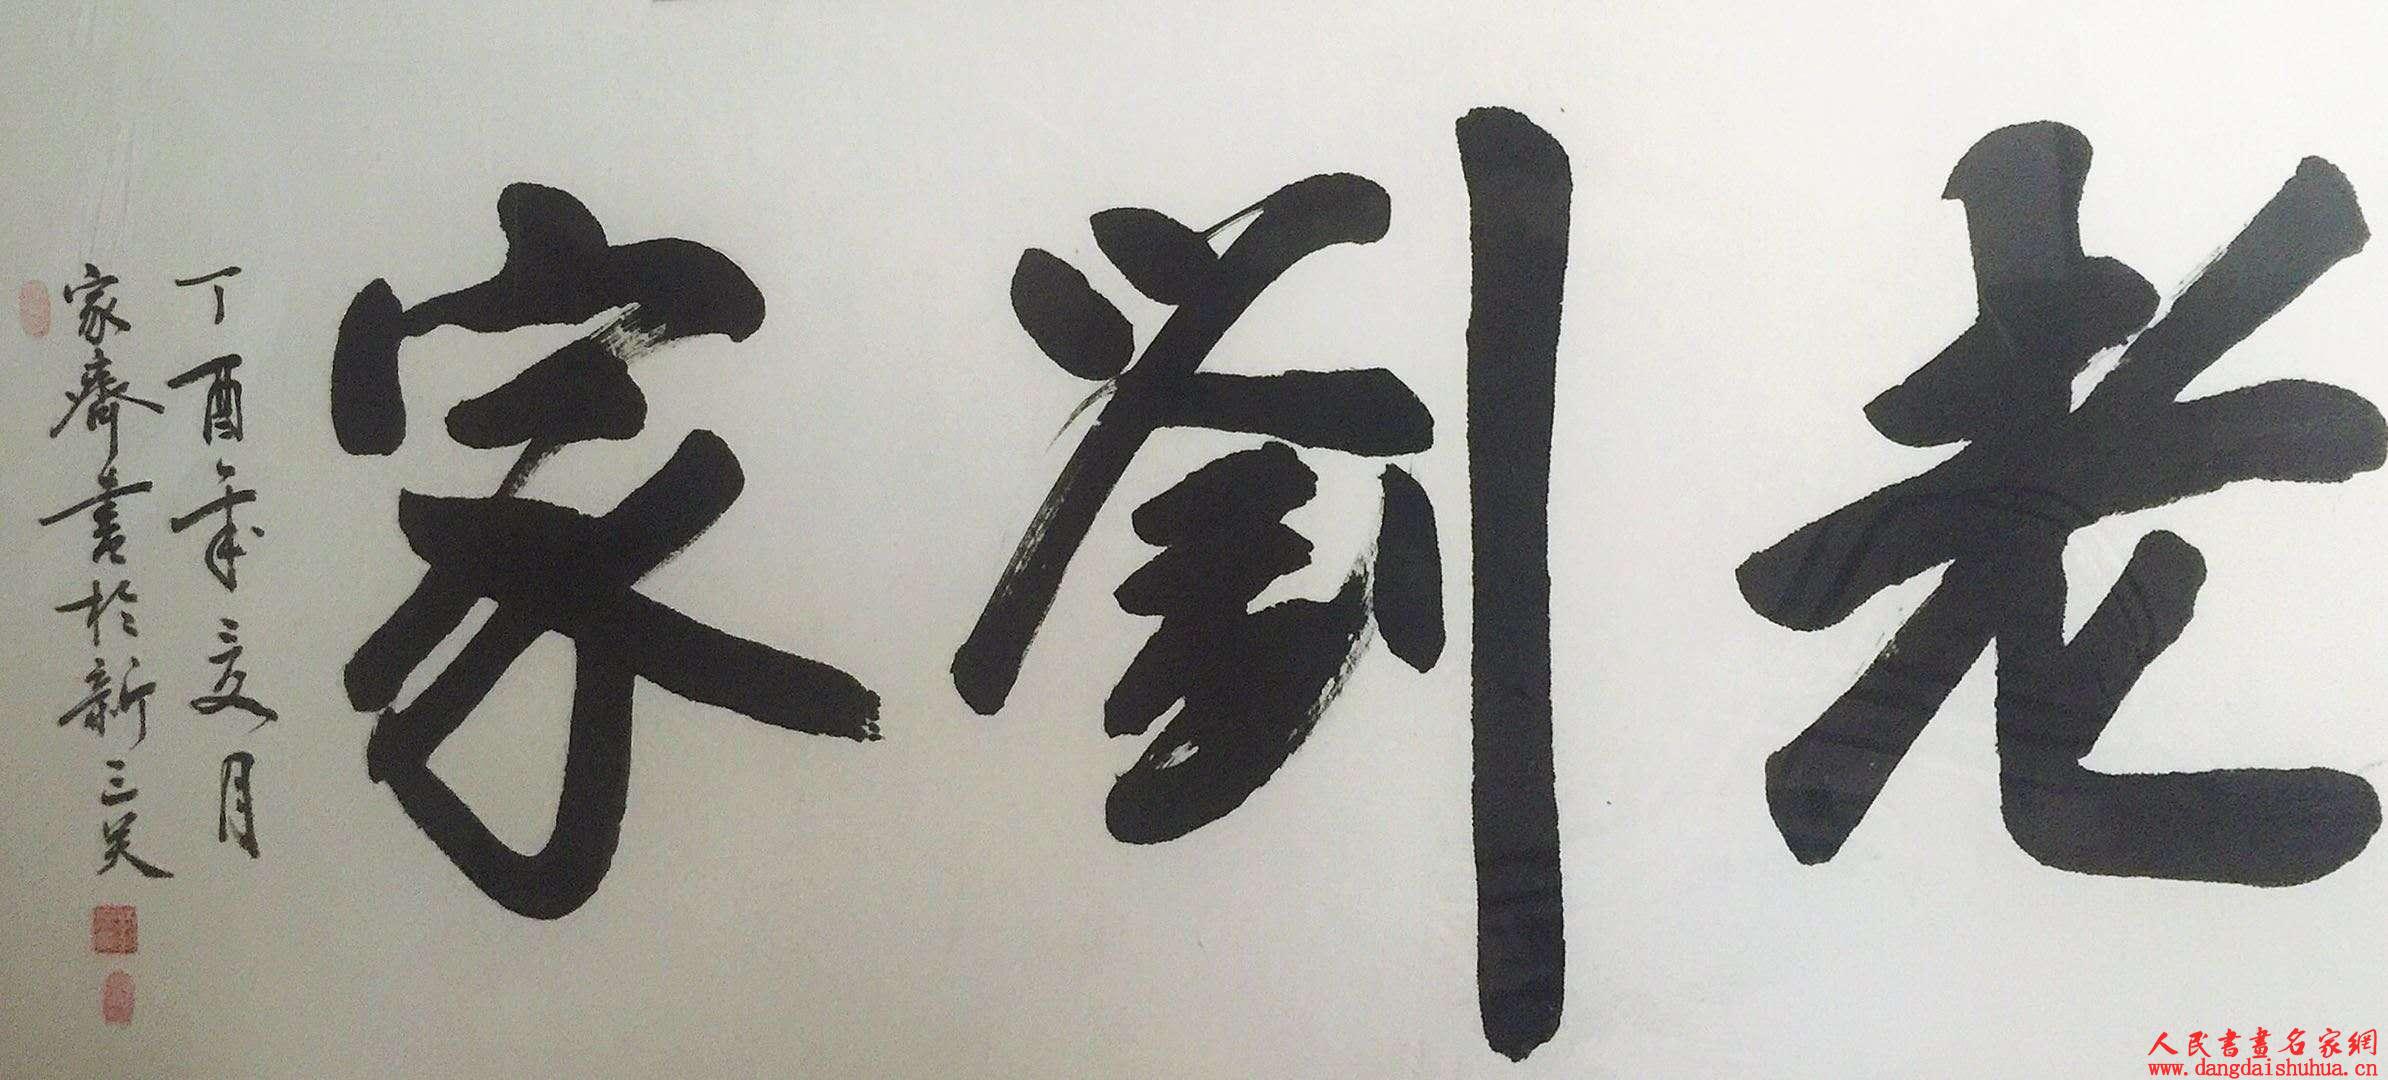 老劉家
丁酉年夏月
家齊書於新三笑
人民書畫名家網
www.dangdaishuhua.cn